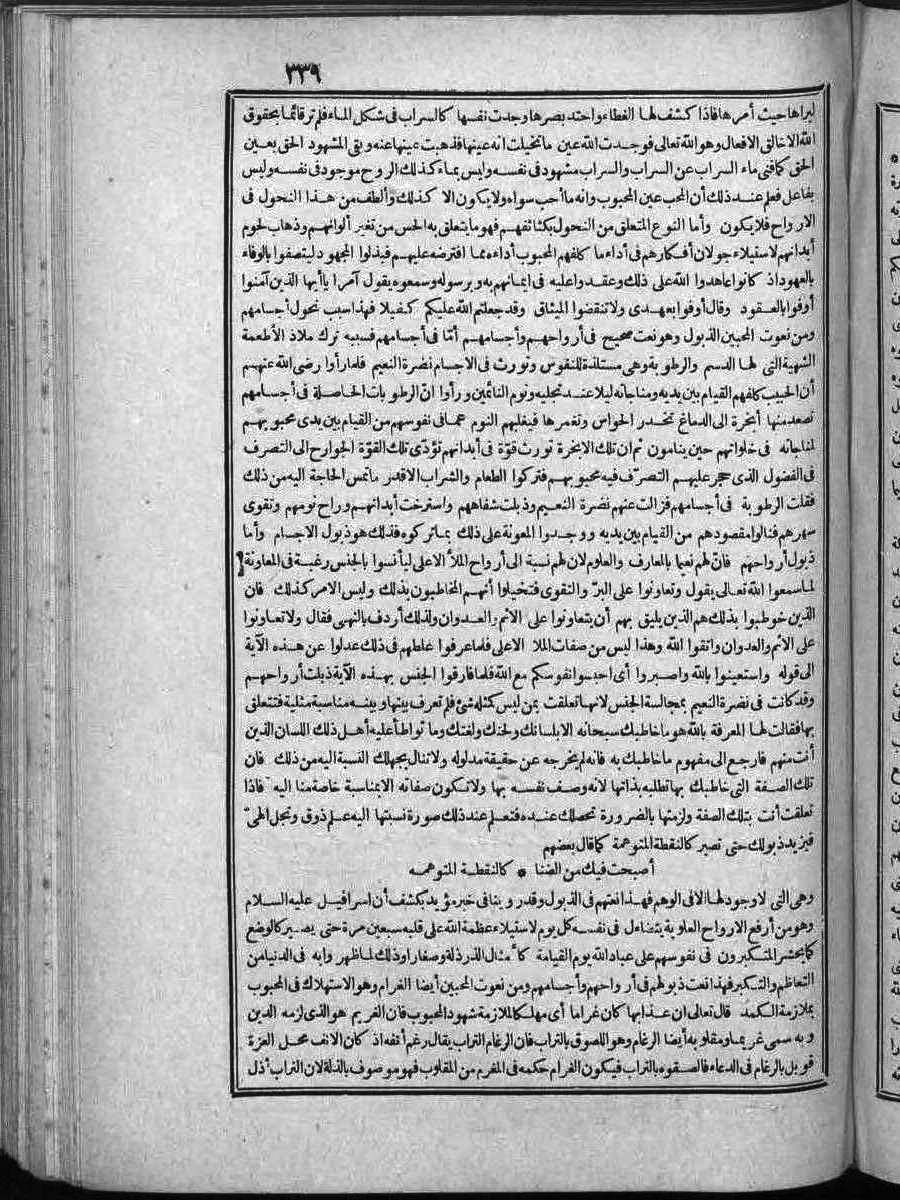 ٣٣٩
ليراها حيث أمرها فاذا كشف لها الغطاء واحتد بصرها وجدت نفسها كالسراب فى شكل الماء فلم تر قائما بحقوق
الله الا خالق الافعال وهو الله تعالى فوجدت الله عين ما تخيلت انه عينها فذهبت عينها عنه وبقى المشهود الحق بعين
الحق كما فنى ماء السراب عن السراب والسراب مشهود فى نفسه وليس بماء كذلك الروح موجود فى نفسه وليس
بفاعل فعلم عند ذلك أن المحب عين المحبوب وانه ما أحب سواه ولا يكون الا كذلك وألطف من هذا النحول فى
الارواح فلا يكون وأما النوع المتعلق من النحول بكثائفهم فهو ما يتعلق به الحس من تغير ألوانهم وذهاب لحوم
أبدانهم لاستيلاء جولان أفكارهم فى أداء ما كلفهم المحبوب أداءه مما افترضه عليهم فبذلوا المجهود ليتصفوا بالوفاء
بالعهود اذ كانوا عاهدوا الله على ذلك وعقدوا عليه فى ايمانهم به وبرسوله وسمعوه يقول آمرا يا أيها الذين آمنوا
أوفوا بالعقود وقال أوفوا بعهدى ولا تنقضوا الميثاق وقد جعلتم الله عليكم كفيلا فهذا سبب نحول أجسامهم
ومن نعوت المحبين الذبول وهو نعت صحيح فى أرواحهم وأجسامهم أمّا فى أجسامهم فسببه ترك ملاذ الأطعمة
الشهية التى لها الدسم والرطوبة وهى مستلذة للنفوس وتورث فى الاجسام نضرة النعيم فلما رأوا رضى الله عنهم
أن الحبيب كلفهم القيام بين يديه ومناجاته ليلا عند تجليه ونوم النائمين ورأوا انّ الرطوبات الحاصلة فى أجسامهم
تصعد منها أبخرة الى الدماغ تخدر الحواس وتغمرها فيغلبهم النوم عما فى نفوسهم من القيام بين يدى محبوبهم
لمناجاته فى خلواتهم حين ينامون ثم ان تلك الابخرة تورث قوّة فى أبدانهم تؤدّى تلك القوّة الجوارح الى التصرف
فى الفضول الذى حجر عليهم التصرّف فيه محبوبهم فتركوا الطعام والشراب الا قدر ما تمس الحاجة اليه من ذلك
فقلت الرطوبة فى أجسامهم فزالت عنهم نضرة النعيم وذبلت شفاههم واسترخت أبدانهم وراح نومهم وتقوى
سهرهم فنالوا مقصودهم من القيام بين يديه ووجدوا المعونة على ذلك بما تركوه فذلك هو ذبول الاجسام وأما
ذبول أرواحهم فانّ لهم نعيما بالمعارف والعلوم لان لهم نسبة الى أرواح الملأ الاعلى ليأنسوا بالجنس رغبة فى المعاونة
لما سمعوا الله تعالى يقول وتعاونوا على البرّ والتقوى فتخيلوا أنهم المخاطبون بذلك وليس الامر كذلك فان
الذين خوطبوا بذلك هم الذين يليق بهم أن يتعاونوا على الاثم والعدوان ولذلك أردف بالنهى فقال ولا تعاونوا
على الاثم والعدوان واتقوا الله وهذا ليس من صفات الملا الاعلى فلما عرفوا غلطهم فى ذلك عدلوا عن هذه الآية
الى قوله واستعينوا بالله واصبروا أى احبسوا نفوسكم مع الله فلما فارقوا الجنس بهذه الآية ذبلت أرواحهم
وقد كانت فى نضرة النعيم بمجالسة الجنس لانها تعلقت بمن ليس كمثله شئ فلم تعرف بينها وبينه مناسبة مثلية فتتعلق
بها فقالت لها المعرفة بالله هو ما خاطبك سبحانه الا بلسانك ولحنك ولغتك وما تواطأ عليه أهل ذلك اللسان الذين
أنت منهم فارجع الى مفهوم ما خاطبك به فانه لم يخرجه عن حقيقة مدلوله ولا تنال بجهلك النسبة اليه من ذلك فان
تلك الصفة التى خاطبك بها تطلبه بذاتها لانه وصف نفسه بها ولا تكون صفاته الا بمناسبة خاصة منا اليه فاذا
تعلقت أنت بتلك الصفة ولزمتها بالضرورة تحصلك عنده فتعلم عند ذلك صورة نسبتها اليه علم ذوق وتجل الهىّ
فيزيد ذبولك حتى تصير كالنقطة المتوهمة كما قال بعضهم
أصبحت فيك من الضنا * كالنقطة المتوهمه
وهى التى لا وجود لها الا فى الوهم فهذا نعتهم فى الذبول وقد روينا فى خبر مؤيد بكشف أن اسرافيل عليه السلام
وهو من أرفع الارواح العلوية يتضاءل فى نفسه كل يوم لاستيلاء عظمة الله على قلبه سبعين مرة حتى يصير كالوضع
كما يحشر المتكبرون فى نفوسهم على عباد الله يوم القيامة كأمثال الذر ذلة وصغارا وذلك لما ظهروا به فى الدنيا من
التعاظم والتكبر فهذا نعت ذبولهم فى أرواحهم وأجسامهم ومن نعوت المحبين أيضا الغرام وهو الاستهلاك فى المحبوب
بملازمة الكمد قال تعالى ان عذابها كان غراما أى مهلكا لملازمة شهود المحبوب فان الغريم هو الذى لزمه الدين
وبه سمى غريما ومقلوبه أيضا الرغام وهو اللصوق بالتراب فان الرغام التراب يقال رغم أنفه اذ كان الانف محل العزة
قوبل بالرغام فى الدعاء فألصقوه بالتراب فيكون الغرام حكمه فى المغرم من المقلوب فهو موصوف بالذلة لان التراب أذل